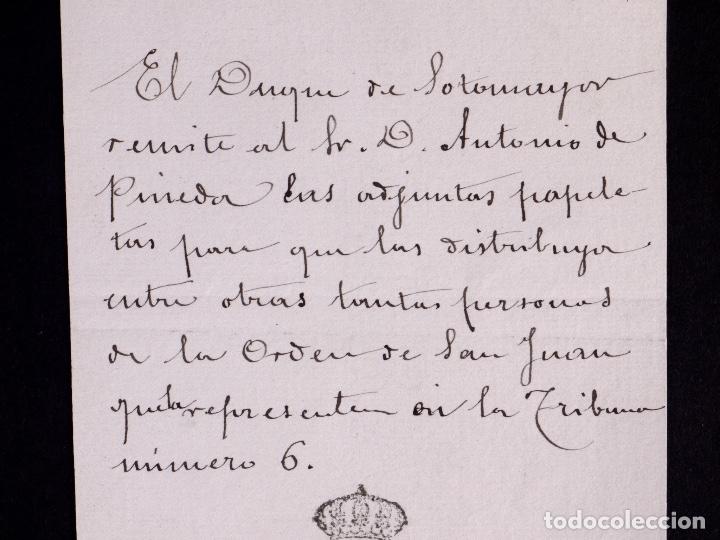 El Duque de Sotomayor
remite al Sr. D. Antonio de
Pineda las adjuntas papele-
tas para que las distribuya
entre otras tantas personas
de la Orden de San Juan
que la representen en la Tribuna
número 6.
todocoleccion